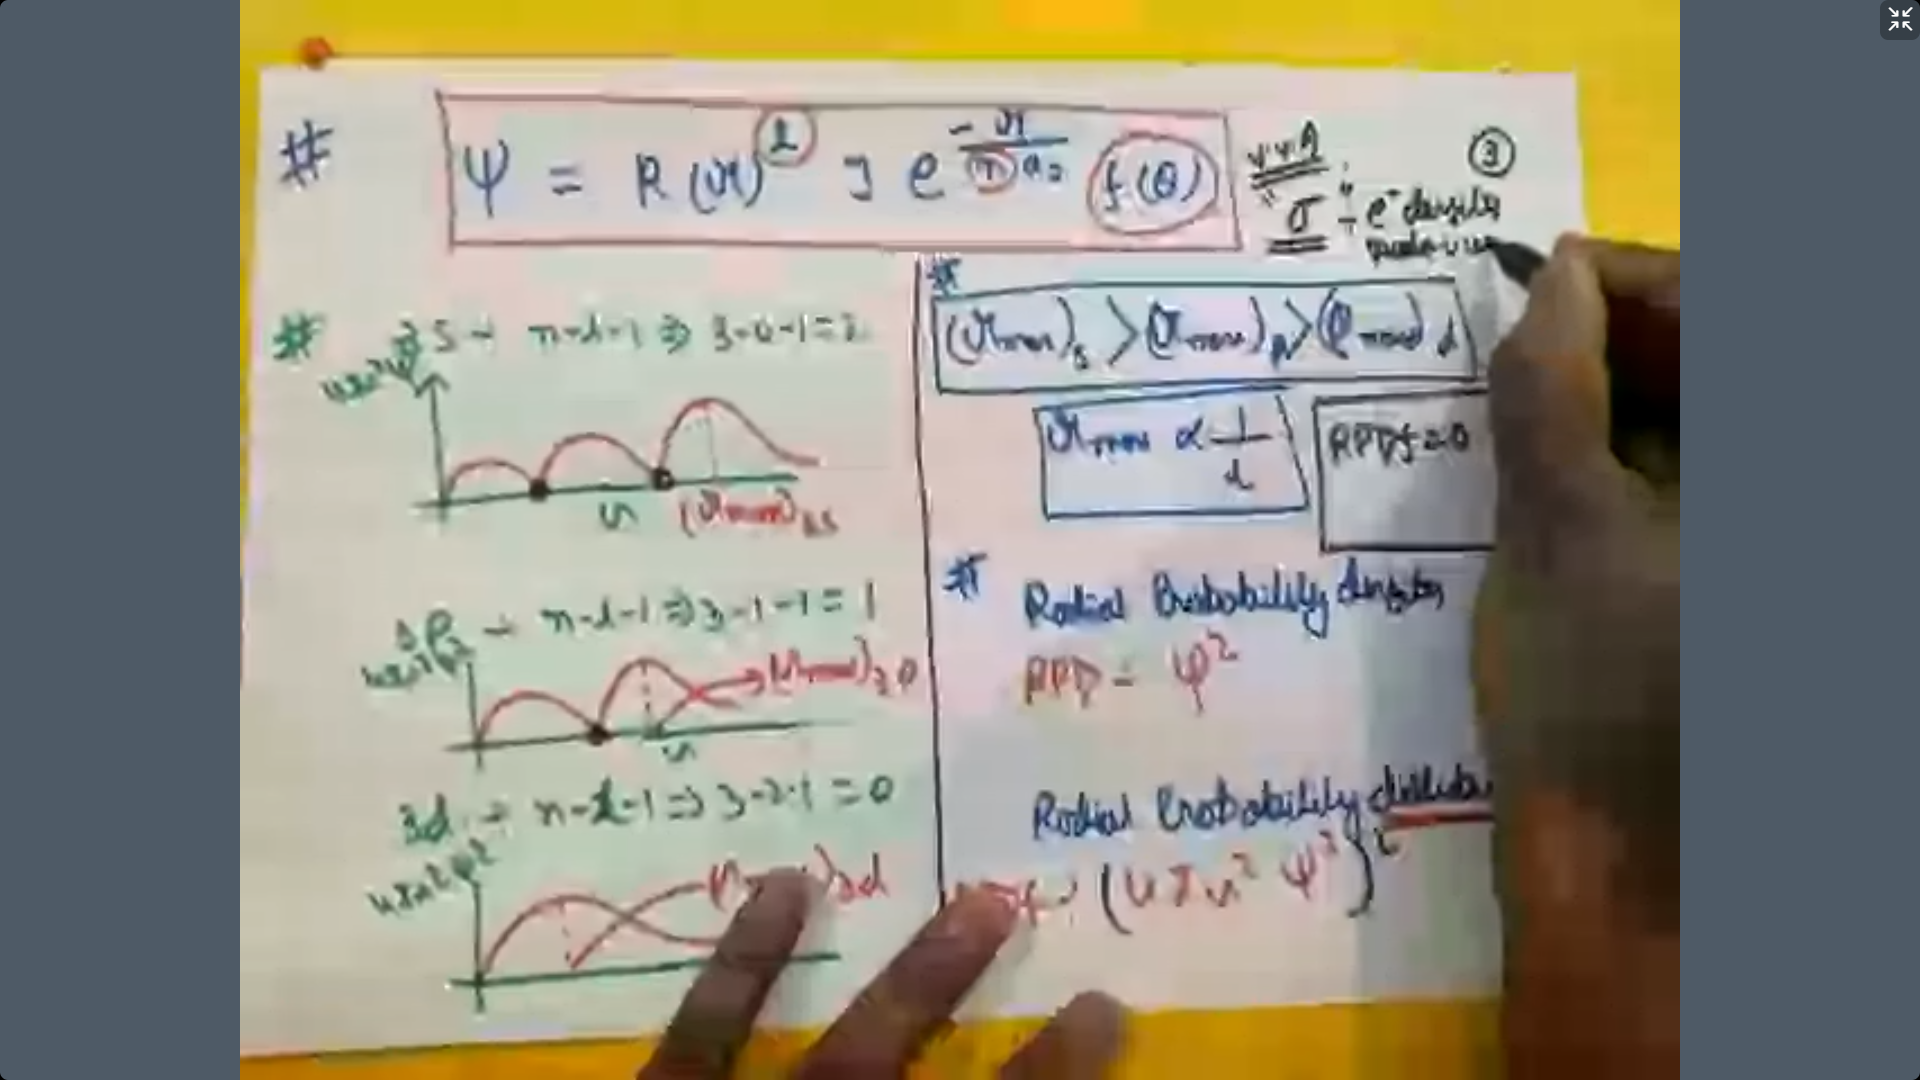 #
ψ = R (r)^l ] e^(-r/(n)a₀) f(θ)
V.V.A
③
" σ " → e⁻ density
#
# 3S → n-l-1 ⇒ 3-0-1=2
4πr²ψ²
r (rmax)3s
3P → n-l-1 ⇒ 3-1-1 = 1
4πr²ψ²
(rmax)3p
r
3d → n-l-1 ⇒ 3-2-1 = 0
4πr²ψ²
3d
(rmax)s > (rmax)p > (rmax)d
rmax ∝ 1/l
RPDf = 0
# Radial Probability density
RPD = ψ²
Radial Probability
(4πr² ψ²)